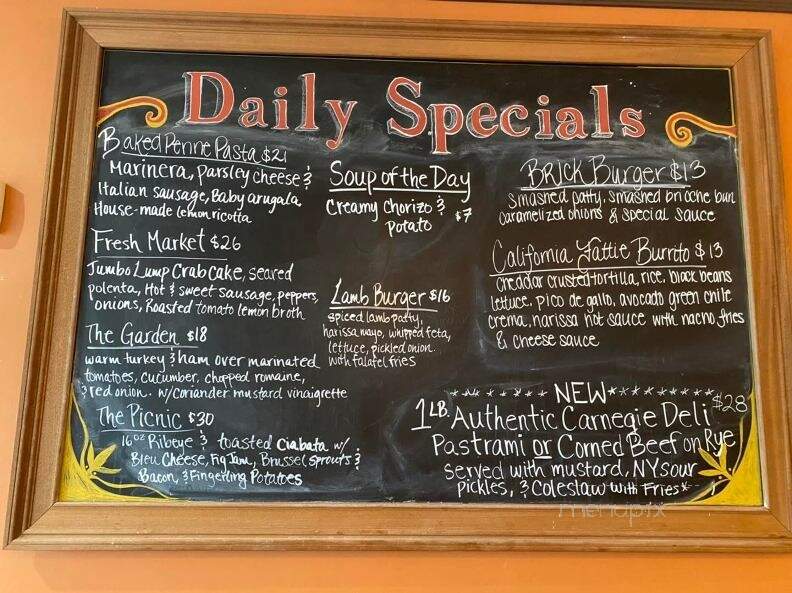 Daily Specials
Baked Penne Pasta $21
Marinera, parsley cheese &
Italian sausage, Baby arugala,
House-made lemon ricotta
Fresh Market $26
Jumbo Lump Crab cake, seared
polenta, Hot & sweet sausage, peppers,
onions, Roasted tomato lemon broth
The Garden $18
warm turkey & ham over marinated
tomatoes, cucumber, chopped romaine,
& red onion. w/coriander mustard vinaigrette
The Picnic $30
16oz Ribeye & toasted Ciabata w/
Bleu Cheese, Fig Jam, Brussel Sprouts &
Bacon, & Fingerling Potatoes
Soup of the Day
Creamy Chorizo &
Potato $7
Lamb Burger $16
spiced lamb patty,
harissa mayo, whipped feta,
lettuce, pickled onion.
with falafel fries
Brick Burger $13
Smashed patty, smashed brioche bun
caramelized onions & special sauce
California Fattie Burrito $13
cheddar crusted tortilla, rice, black beans
lettuce, pico de gallo, avocado green chile
crema, harissa hot sauce with nacho fries
& cheese sauce
******NEW********
1 LB. Authentic Carnegie Deli $28
Pastrami or Corned Beef on Rye
served with mustard, NY sour
pickles, & Coleslaw with Fries*
menupix